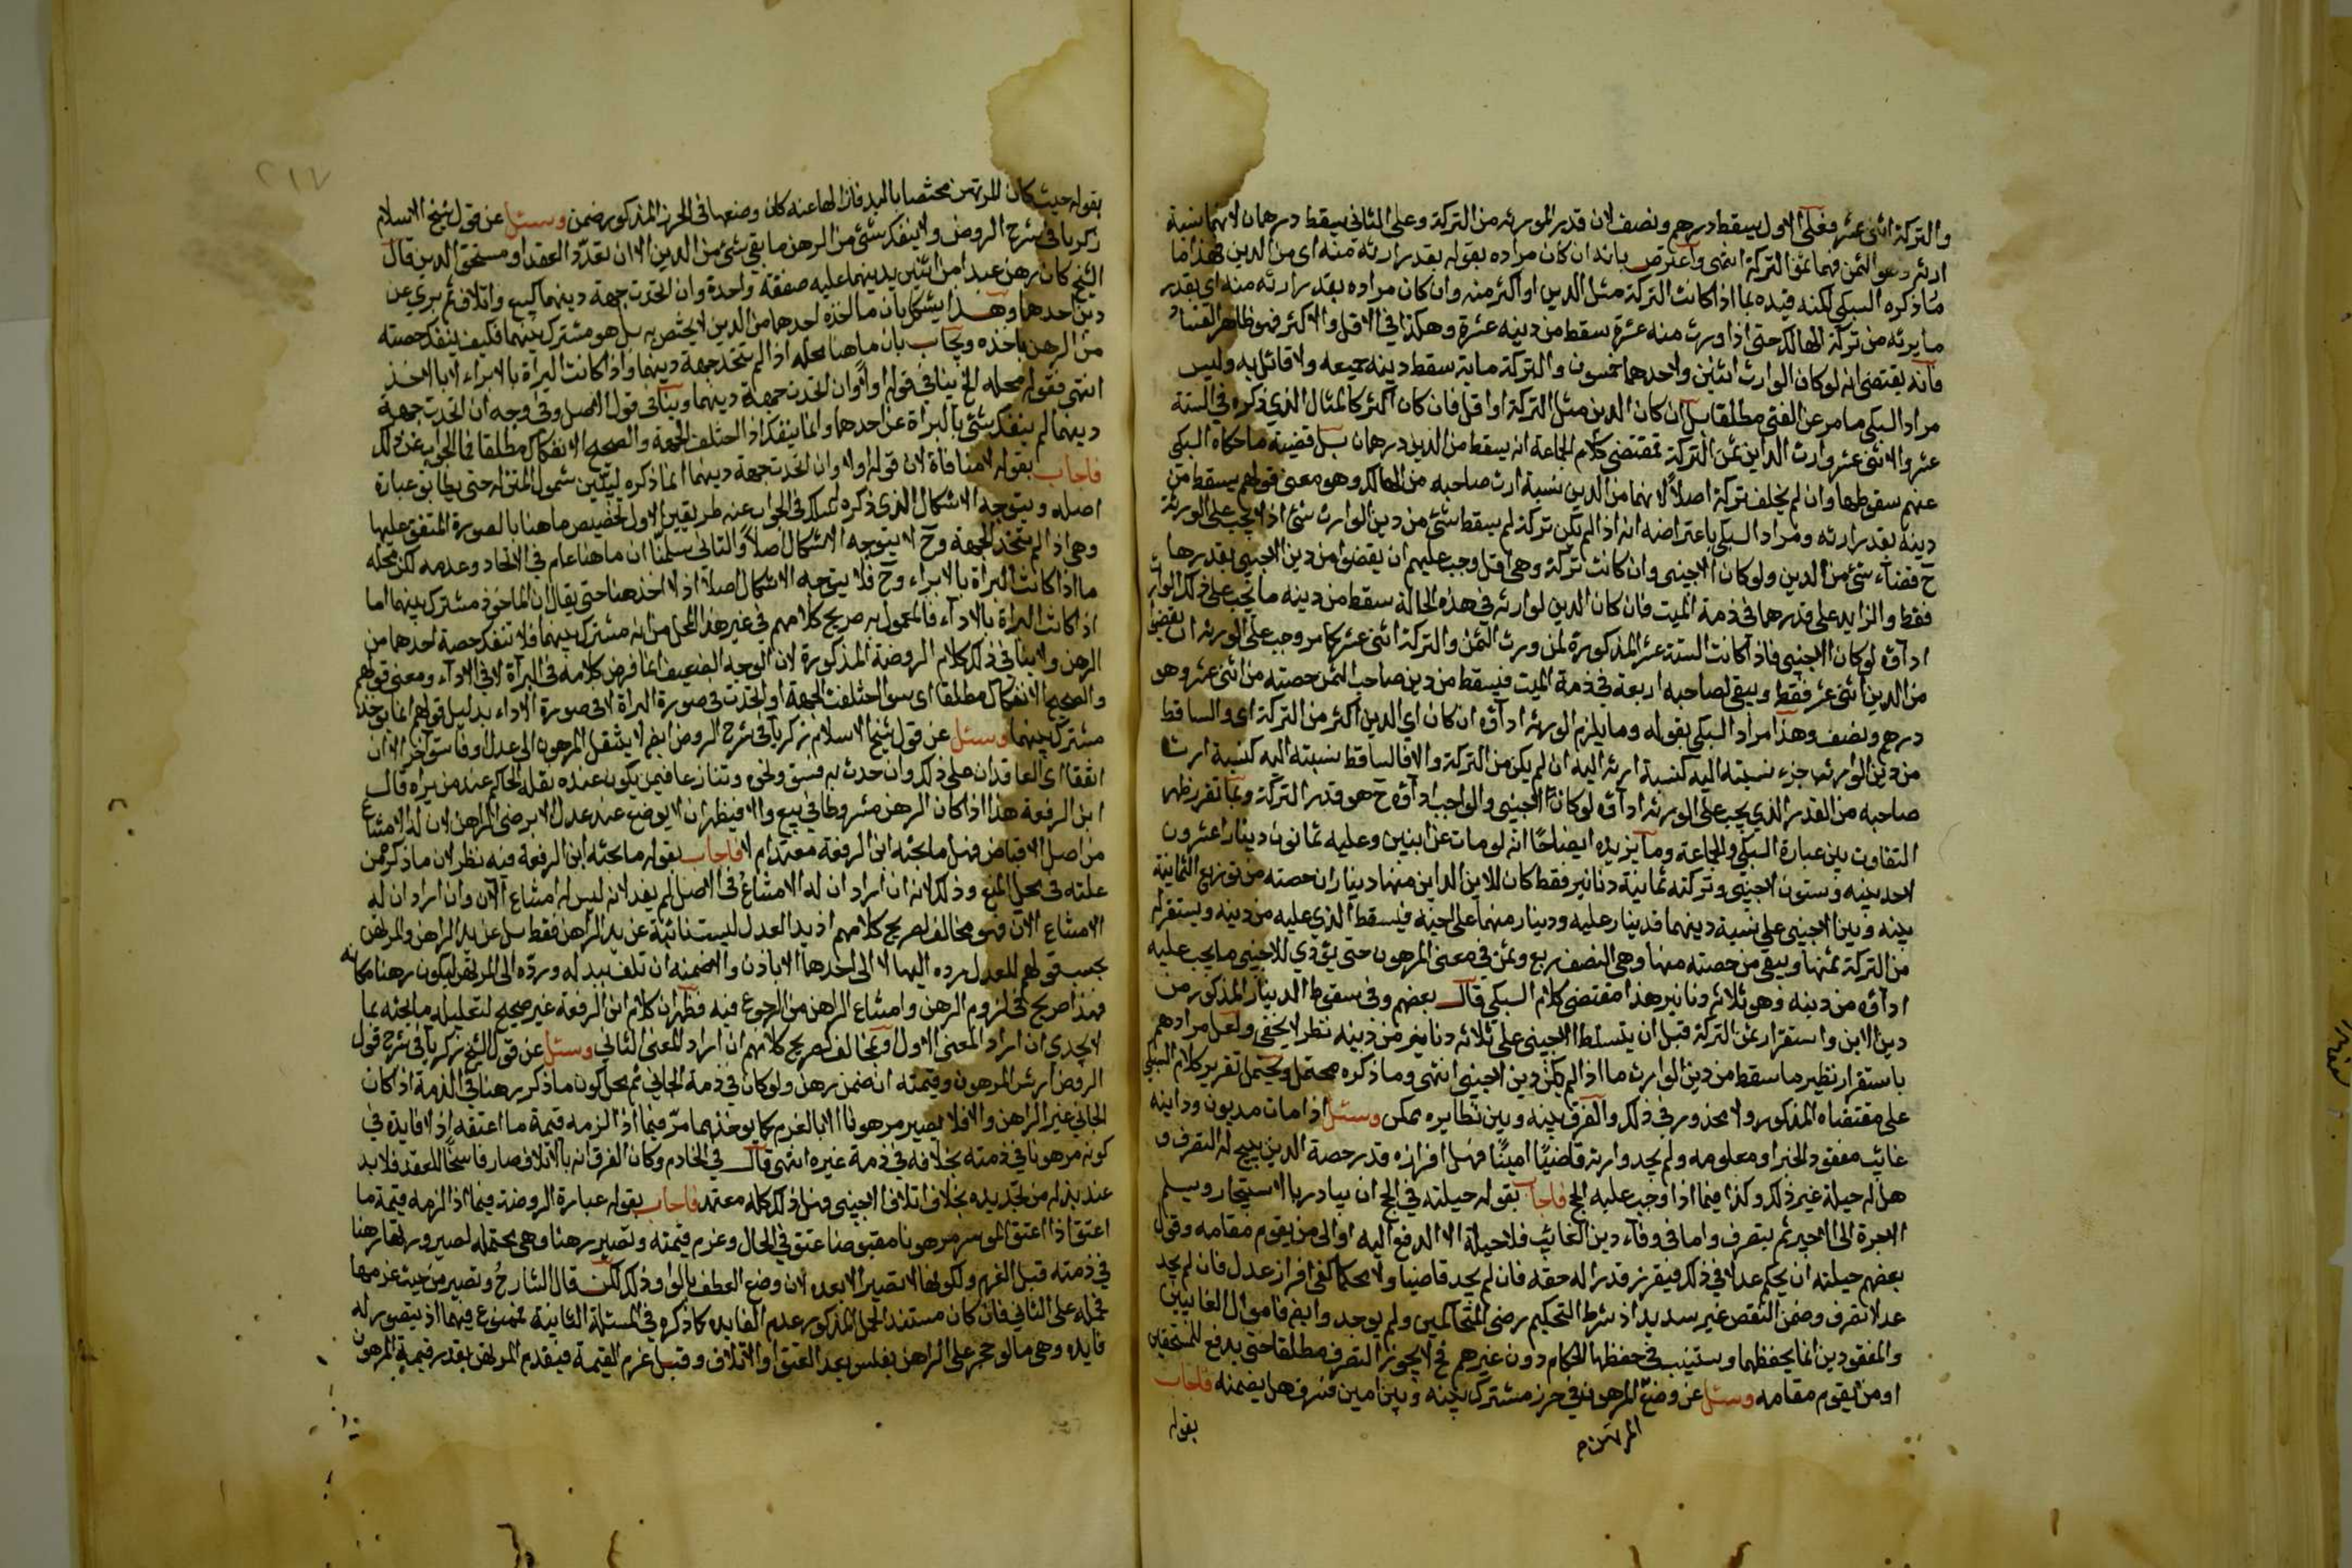 والتركة اثنى عشر فعلى الاول يسقط درهم ونصف لان قدر الموروثه من التركة وعلى الثانى يسقط درهمان لانهما نسبة
ارثه وهو الثمن فهما ثمن التركة انتهى واعترض بانه ان كان مراده بقوله بقدر ارثه منه اى من الدين فهذا ما
ما ذكره السبكى لكنه قيده بما اذا كانت التركة مثل الدين او اكثر منه وان كان مراده بقدر ارثه منه اى بقدر
ما يرثه من تركة الهالك حتى اذا ورث منه عشرة سقط من دينه عشرة وهكذا فى الاقل والاكثر فهو ظاهر الفساد
فانه يقتضى انه لو كان الوارث اثنين ولاحدهما خمسون والتركة ماية سقط دينه جميعه ولا قائل به وليس
مراد السبكى ما مر عن الفتى مطلقا بل ان كان الدين مثل التركة او اقل فان كان اكثر كالمثال الذى ذكره فى الستة
عشر والاثنى عشر وارث الداين ثمن التركة فمقتضى كلام الجماعة انه يسقط من الدين درهمان بل قضية ما حكاه السبكى
عنهم سقوطها وان لم يخلف تركة اصلا لانهما من الدين نسبة ارث صاحبه من الهالك وهو معنى قولهم يسقط من
دينه بقدر ارثه ومراد السبكى باعتراضه انه اذا لم تكن تركة لم يسقط شئ من دين الوارث شئ اذ لا يجب على الورثة
ح قضاء شئ من الدين ولو كان الاجنبى وان كانت تركة وهى اقل وجب عليهم ان يقضوا من دين الاجنبى بقدرها
فقط والزايد على قدرها فى ذمة الميت فان كان الدين لوارثه فى هذه الحالة سقط من دينه ما يجب على ذلك الوارث
اداؤه لو كان لاجنبى فاذا كانت الستة عشر المذكورة لمن ورث الثمن والتركة اثنى عشر كما مر وجب على الورثة ان يقضوا
من الدين اثنى عشر فقط ويبقى لصاحبه اربعة فى ذمة الميت فيسقط من دين صاحب الثمن حصته من اثنى عشر وهو
درهم ونصف وهذا مراد السبكى بقوله وما يلزم الورثة اداؤه ان كان اى الدين اكثر من التركة اى والساقط
من دين الوارث جزء نسبته اليه كنسبة ارثه اليه ان لم يكن من التركة والا فالساقط نسبته اليه كنسبة ارث
صاحبه من القدر الذى يجب على الورثة اداؤه لو كان لاجنبى والواجب اداؤه ح هو قدر التركة وبما تقرر ظهر
التفاوت بين عبارة السبكى والجماعة ومما يزيده ايضاحا انه لو مات عن ابنين وعليه ثمانون دينارا عشرون
لاحد بنيه وستون لاجنبى وتركته ثمانية دنانير فقط كان للابن الداين منها ديناران حصته من توزيع الثمانية
بينه وبين الاجنبى على نسبة دينهما فدينار عليه ودينار منهما على اخيه فيسقط الذى عليه من دينه ويستقر له
من التركة ثمنها ويبقى من حصته منها وهى النصف ربع وثمن فى معنى المرهون حتى يؤدى للاجنبى ما يجب عليه
اداؤه من دينه وهو ثلاثة دنانير هذا مقتضى كلام السبكى قال بعضهم وفى سقوط الدينار المذكور من
دين الابن واستقرار ثمن التركة قبل ان يتسلط الاجنبى على ثلاثه دنانير من دينه نظر لا يخفى ولعل مرادهم
باستقرار نظير ما سقط من دين الوارث ما اذا لم يكن دين لاجنبى انتهى وما ذكره محتمل ويحتمل تقرير كلام السبكى
على مقتضاه المذكور ولا محذور فى ذلك والفرق بينه وبين نظايره ممكن وسئل اذا مات مديون وداينه
غائب مفقود الخبر او معلومه ولم يجد وارثه قاضيًا امينًا فهل افرازه قدر حصة الدين يبيح له التصرف و
هل له حيلة غير ذلك وكذا فيما اذا وجب عليه الحج فاجاب بقوله حيلته فى الحج ان يبادر بالاستيجار ويسلم
الاجرة الى الاجير ثم يتصرف واما فى وفاء دين الغائب فلا حيلة الا الدفع اليه او الى من يقوم مقامه وقول
بعضهم حيلته ان يحكم عدلا فى ذلك فيفرز قدرا له حقه فان لم يجد قاضيا ولا محكما كفى افراز عدل فان لم يجد
عدلا تصرف وضمن النقص غير سديد اذ شرط التحكيم رضى المتحاكمين ولم يوجد وايضا فاموال الغائبين
والمفقودين انما يحفظها ويستنيب فى حفظها الحكام دون غيرهم فح لا يجوز التصرف مطلقا حتى يدفع للمستحقين
او من يقوم مقامه وسئل عن وضع المرهون فى حرز مشترك بينه وبين امين فسرق هل يضمنه فاجاب
المرتهن م
بقوله
٢١٧
بقوله حيث كان للمرتهن مختصا باليد فازالها عنه كان وضعها فى الحرز المذكور ضمن وسئل عن قول شيخ الاسلام
زكريا فى شرح الروض ولا ينفك شئ من الرهن ما بقى شئ من الدين الا ان تعدد العقد او مستحق الدين قال
الشيخ كان رهن عبدا من اثنين بدينهما عليه صفقة واحدة وان اتحدت جهة دينهما كبيع واتلاف ثم برى عن
دين احدهما وهذا يشكل بان ما اخذه احدهما من الدين لا يختص به بل هو مشترك بينهما فكيف ينفك حصته
من الرهن باخذه ويجاب بان ما هنا محله اذا لم يتحد جهة دينهما واذا كانت البراة بالابراء لا بالاخذ
انتهى فقوله محله الخ ينافى قوله اولا وان اتحدت جهة دينهما وينافى قول الاصل وفى وجه ان اتحدت جهة
دينهما لم ينفك شئ بالبراة عن احدهما وانما ينفك اذا اختلفت الجهة والصحيح الانفكاك مطلقا فما الجواب عن ذلك
فاجاب بقوله لا منافاة لان قوله اولا وان اتحدت جهة دينهما انما ذكره ليبين شمول المتن له حتى يطابق عبارة
اصله ويتوجه الاشكال الذى ذكره فسلك فى الجواب عنه طريقين الاول تخصيص ما هنا بالصورة المتفق عليها
وهى اذا لم يتحد الجهة وح لا يتوجه الاشكال اصلا والثانى سلمنا ان ما هنا عام فى الاتحاد وعدمه لكن محله
ما اذا كانت البراة بالابراء وح فلا يتوجه الاشكال اصلا اذ لا اخذ هنا حتى يقال ان الماخوذ مشترك بينهما اما
اذا كانت البراة بالاداء فالمعمول به صريح كلامهم فى غير هذا المحل من انه مشترك بينهما فلا تنفك حصة احدهما من
الرهن ولا ينافى ذلك كلام الروضة المذكورة لان الوجه الضعيف انما فرض كلامه فى البراة لا فى الاداء ومعنى قولهم
والصحيح الانفكاك مطلقا اى سوا اختلفت الجهة او اتحدت فى صورة البراة لا فى صورة الاداء بدليل قولهم انما يوخذ
مشترك بينهما وسئل عن قول شيخ الاسلام زكريا فى شرح الروض ايضا لا ينتقل المرهون الى عدل او فاسق آخر الا ان
اتفقا اى العاقدان على ذلك وان حدث به فسق ونحوه وتنازعا فيمن يكون عنده نقله الحاكم عند من يراه قال
ابن الرفعة هذا اذا كان الرهن مشروطا فى بيع والا فيظهر ان لا يوضع عند عدل الا برضى الراهن لان له الامتناع
من اصل الاقباض فهل ما بحثه ابن الرفعة معتمد ام لا فاجاب بقوله ما بحثه ابن الرفعة فيه نظر لان ما ذكره من
علته فى محل المنع وذلك لانه ان اراد ان له الامتناع فى الاصل لم يفد لانه ليس له امتناع الآن وان اراد ان له
الامتناع الآن فهو مخالف لصريح كلامهم اذ يد العدل ليست نائبة عن يد الراهن فقط بل عن يد الراهن والمرتهن
بحسب قولهم للعدل رده اليهما لا الى احدهما الا باذن والا ضمنه ان تلف بيد له ورده الى المرتهن ليكون رهنا مكانه
فهذا صريح فى لزوم الرهن وامتناع الراهن من الرجوع فيه فظهر ان كلام ابن الرفعة غير صحيح لتعليله ما بحثه بما
لا يجدى ان اراد المعنى الاول وبمخالف لصريح كلامهم ان اراد المعنى الثانى وسئل عن قول الشيخ زكريا فى شرح قول
الروض ارش المرهون وقيمته ان ضمن رهن ولو كان فى ذمة الجانى ثم محل كون ما ذكر رهنا فى الذمة اذا كان
الجانى غير الراهن والا فلا يصير مرهونا الا بالغرم كما يوخذ مما مر فيما اذا الزمه قيمة ما اعتقه اذ لا فايدة فى
كونه مرهونا فى ذمته بخلافه فى ذمة غيره انتهى قال فى الخادم وكان الفرق انه بالاتلاف صار فاسخا للعقد فلا بد
عند بذله من تجديده بخلاف اتلاف الاجنبى وهل ذلك كله معتمد فاجاب بقوله عبارة الروضة فيما اذا الزمه قيمة ما
اعتق اذا اعتق الموسر مرهونا مقبوضا عتق فى الحال وغرم قيمته وتصير رهنا وهى محتملة لصيرورتها رهنا
فى ذمته قبل الغرم ولكونها لا تصير الا بعده لان وضع العطف بالواو ذلك لكن قال الشارح وتصير من حيث غرمها
فحمله على الثانى فان كان مستند الحمل المذكور عدم الفايده كما ذكره فى المسئلة الثانية فممنوع فيهما اذ يتصور له
فايده وهى ما لو حجر على الراهن بفلس بعد العتق او الاتلاف وقبل غرم القيمة فيقدم المرتهن بقدر قيمة المرهون